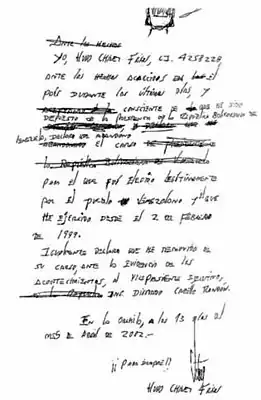 Ante los hechos
Yo, Hugo Chávez Frías, C.I. 4258228
ante los hechos acaecidos en el
país durante los últimos días, y
consciente de que he sido
depuesto de la presidencia de la República Bolivariana de
Venezuela, declaro que abandono
el cargo de
la República de Venezuela
para el que fui electo legítimamente
por el pueblo venezolano y que
he ejercido desde el 2 de febrero
de 1999.
Igualmente declaro que he removido de
su cargo, ante la evidencia de los
acontecimientos, al vicepresidente ejecutivo,
Ing. Diosdado Cabello Rondón.
En a los 13 días del
mes de abril de 2002.-
¡¡Para siempre!!
Hugo Chávez Frías